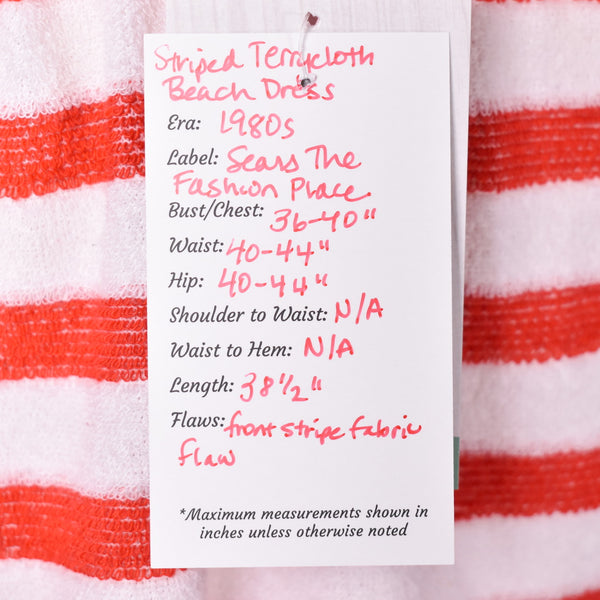 Striped Terrycloth
Beach Dress
Era: 1980s
Label: Sears The
Fashion Place
Bust/Chest: 36-40"
Waist: 40-44"
Hip: 40-44"
Shoulder to Waist: N/A
Waist to Hem: N/A
Length: 38 1/2"
Flaws: front stripe fabric
flaw
*Maximum measurements shown in
inches unless otherwise noted